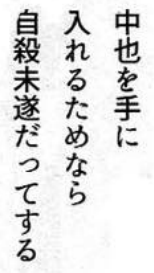 中也を手に
入れるためなら
自殺未遂だってする